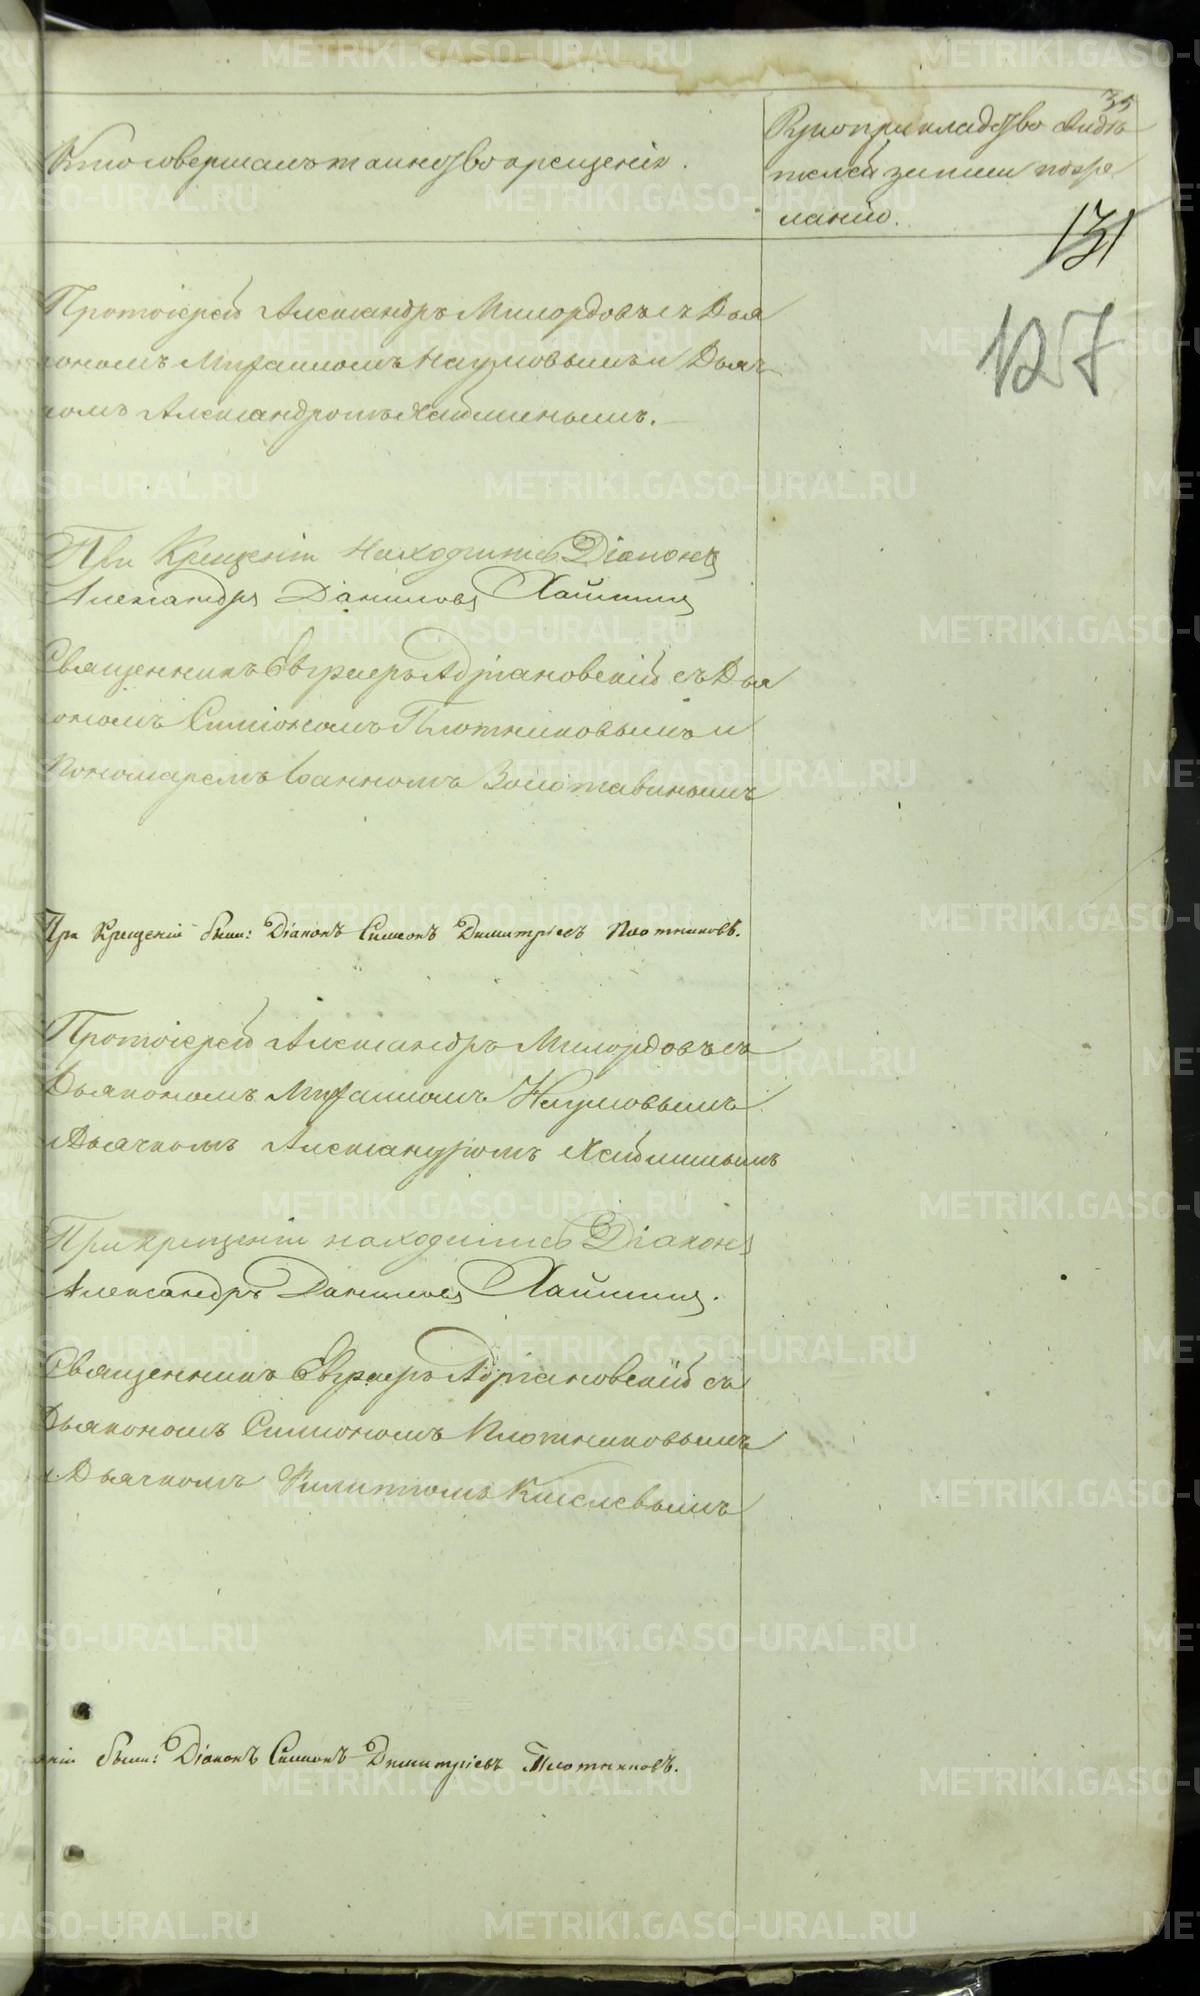 35
Кто совершалъ таинство крещенія.
Рукоприкладство свидѣ
телей записи по же
ланію.
131
127
Протоіерей Александръ Милордовъ съ Дья
кономъ Михаиломъ Наумовымъ и Дьяч
комъ Александромъ Хайминымъ.
При Крещеніи Находились Діаконъ
Александръ Даниловъ Хайминъ
Священникъ Евграфъ Адріановскій съ Дья
кономъ Симіономъ Плотниковымъ и
Пономаремъ Іоанномъ Золотавинымъ
При Крещеніи были: Діаконъ Симеонъ Димитріевъ Плотниковъ.
Протоіерей Александръ Милордовъ съ
Дьякономъ Михаиломъ Наумовымъ
и Дьячкомъ Александромъ Хайминымъ
При крещеніи находились Діаконъ
Александръ Даниловъ Хайминъ.
Священникъ Евграфъ Адріановскій съ
Дьякономъ Симіономъ Плотниковымъ
и Дьячкомъ Филиппомъ Киселевымъ
ніи были: Діаконъ Симеонъ Димитріевъ Плотниковъ.
METRIKI.GASO-URAL.RU